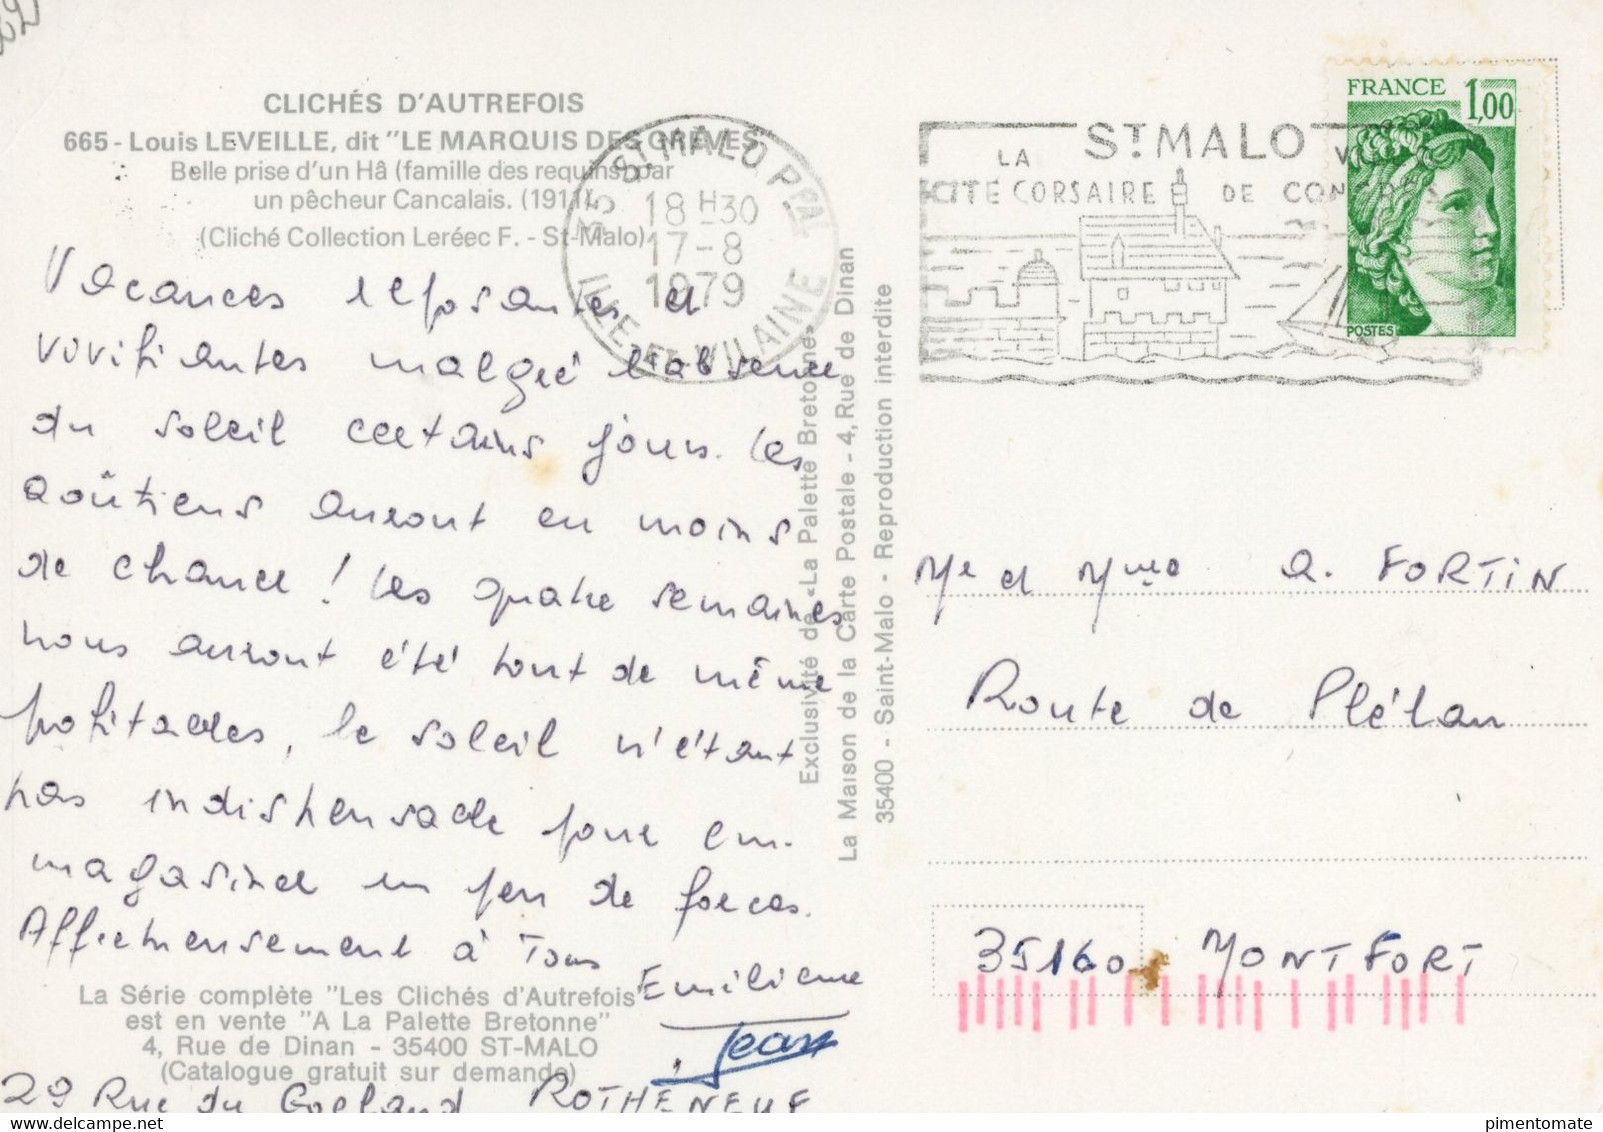 CLICHÉS D'AUTREFOIS
665 - Louis LEVEILLE, dit "LE MARQUIS DES GRÈVES"
Belle prise d'un Hâ (famille des requins) par
un pêcheur Cancalais. (1911).
(Cliché Collection Leréec F. - St-Malo)
Vacances reposantes et
vivifiantes malgré l'absence
du soleil certains jours. Les
aoûtiens auront eu moins
de chance ! Les quatre semaines
nous auront été tout de même
profitables, le soleil n'étant
pas indispensable pour em-
magasiner un peu de forces.
Affectueusement à Tous
Emilienne
Jean
La Série complète "Les Clichés d'Autrefois"
est en vente "A La Palette Bretonne"
4, Rue de Dinan - 35400 ST-MALO
(Catalogue gratuit sur demande)
29 Rue du Goéland ROTHÉNEUF
Exclusivité de «La Palette Bretonne»
La Maison de la Carte Postale - 4, Rue de Dinan
35400 - Saint-Malo - Reproduction interdite
35 ST MALO PPAL
18 H30
17-8
1979
ILLE ET VILAINE
ST MALO
LA
CITÉ CORSAIRE
DE
FRANCE 1,00
POSTES
Mr et Mme A. FORTIN
Route de Plélan
35160 MONTFORT
pimentomate